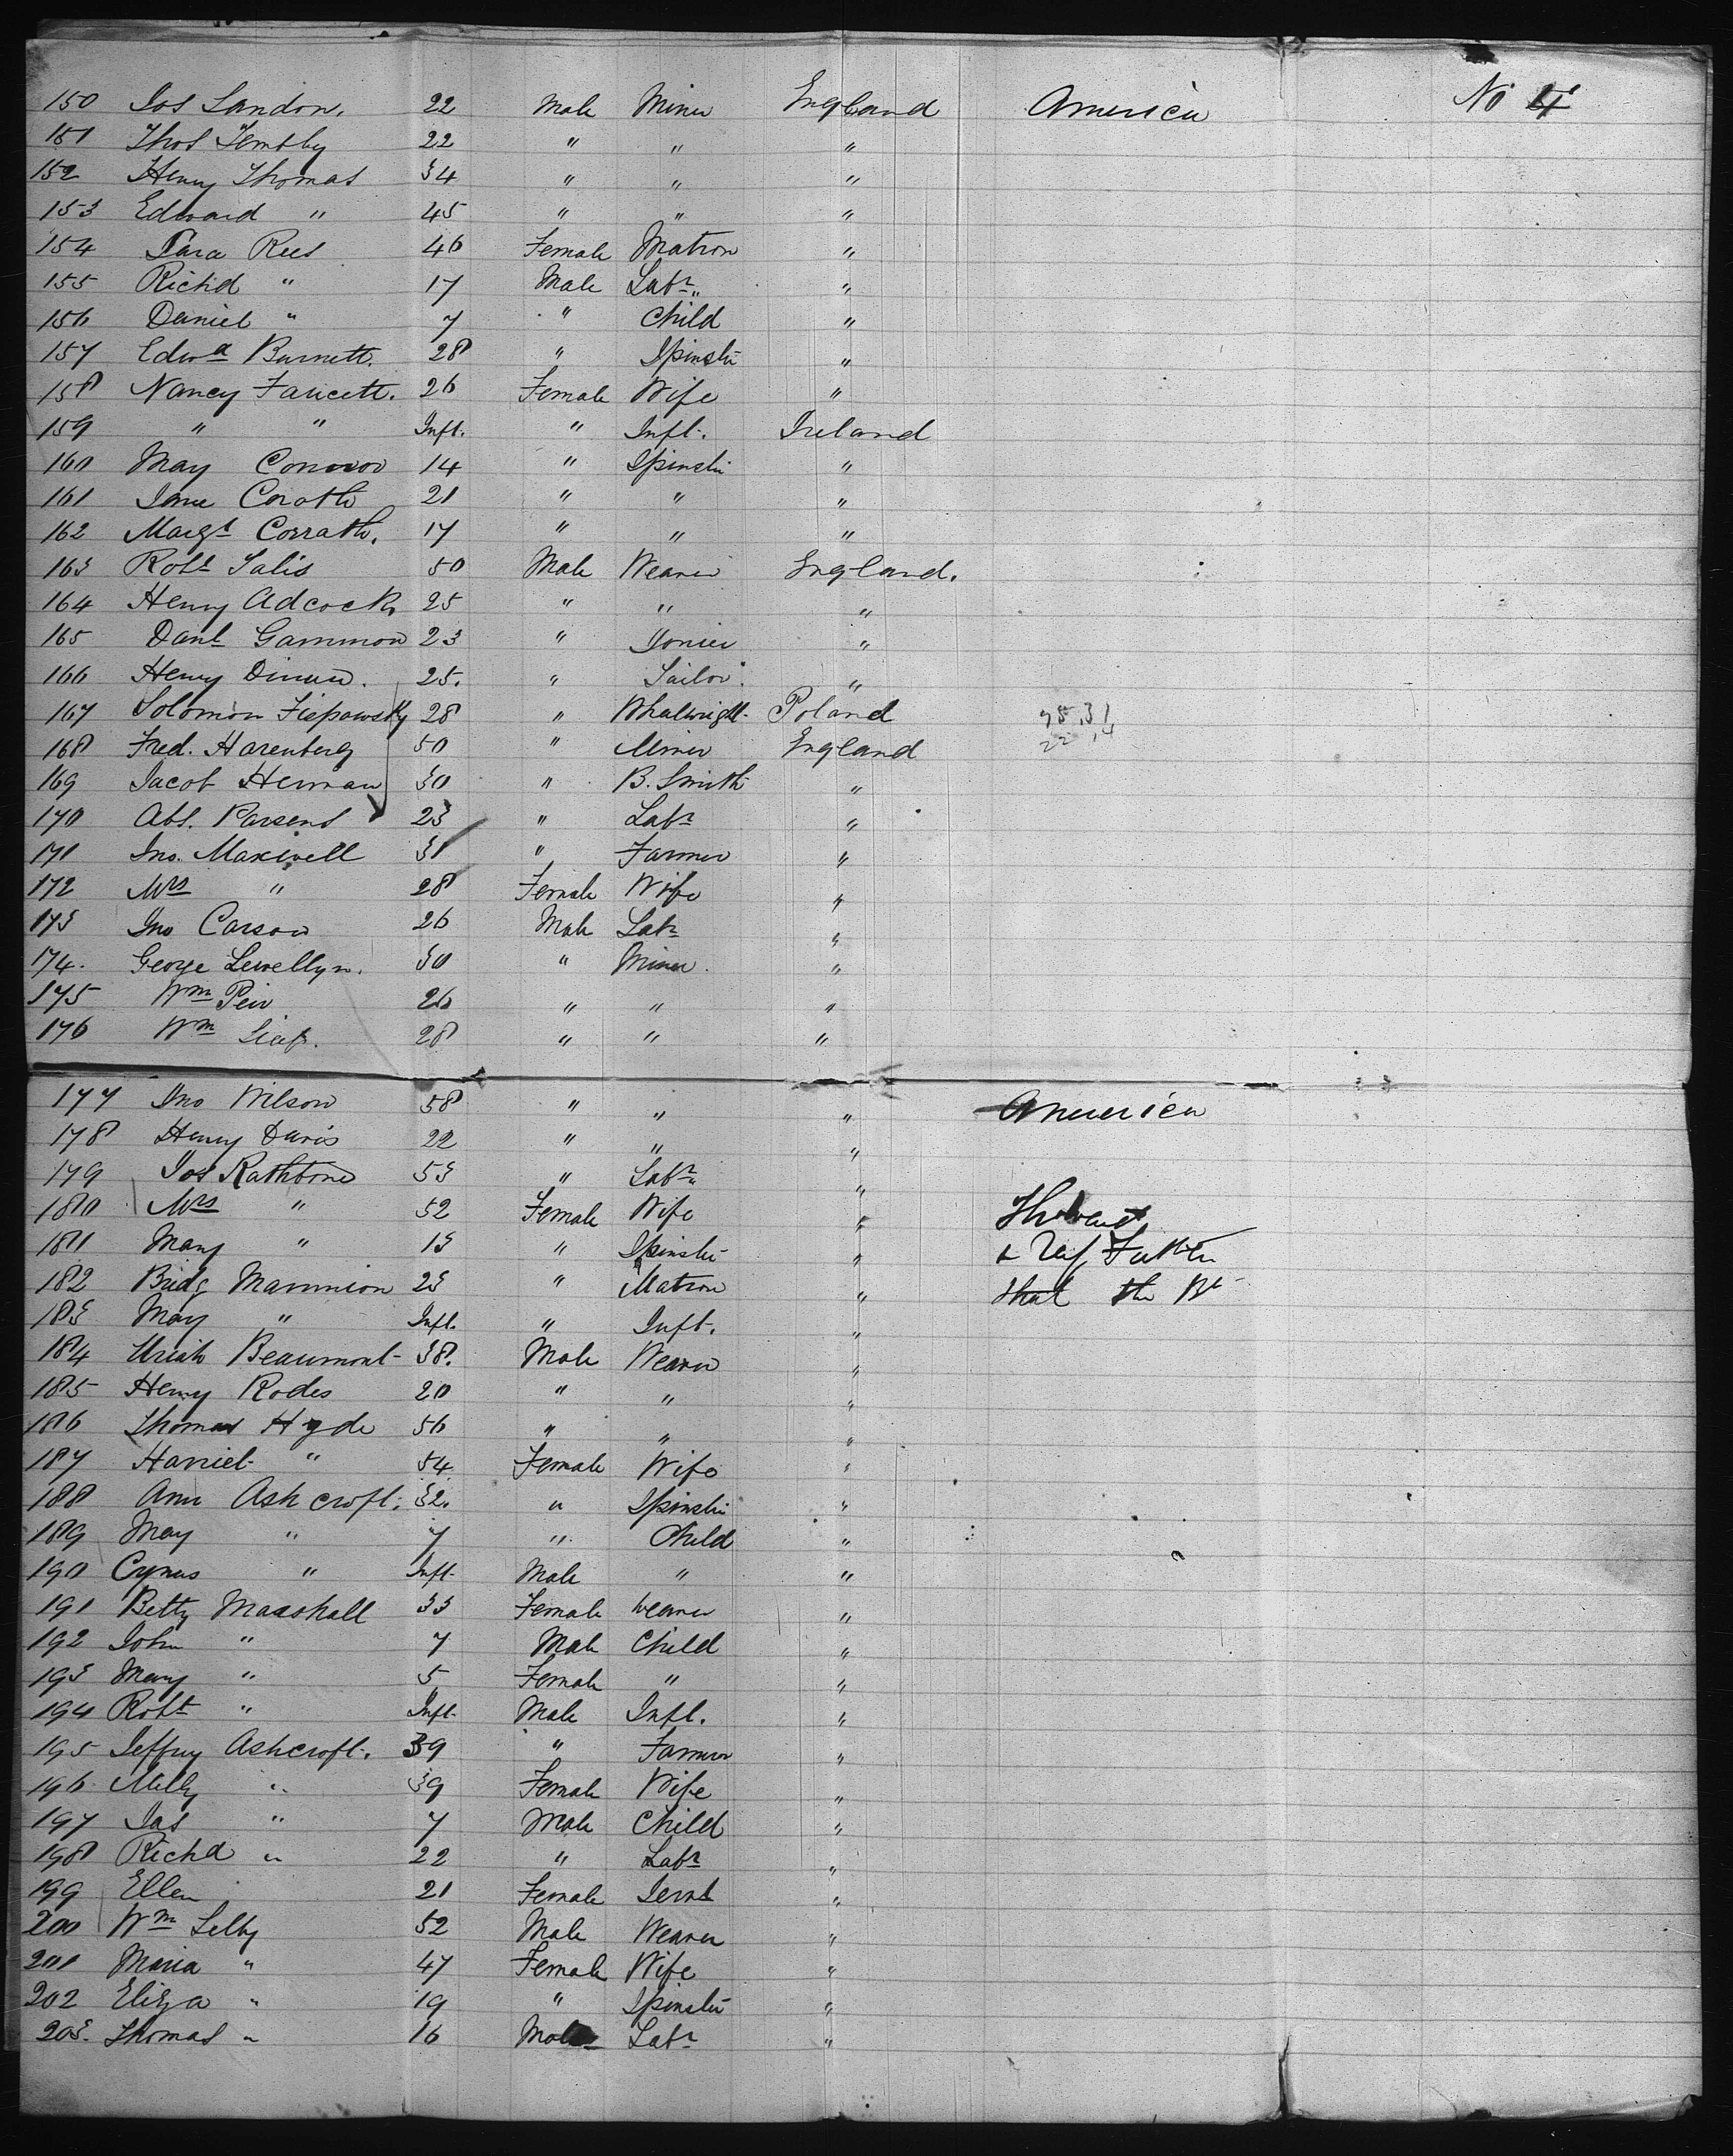 150 Jos Landon. 22 Male Miner England America No 4
151 Thos Tembly 22 " " "
152 Henry Thomas 34 " " "
153 Edward " 45 " " "
154 Sara Rees 46 Female Matron "
155 Richd " 17 Male Labr "
156 Daniel " 7 " Child "
157 Edwd Burnett. 28 " Spinster "
158 Nancy Faucett. 26 Female Wife "
159 " " Inft. " Inft. Ireland
160 May Connor 14 " Spinster "
161 Jane Corath 21 " " "
162 Margt Corrath. 17 " " "
163 Robt Salis 50 Male Weaver England.
164 Henry Adcock 25 " " "
165 Danl Gammon 23 " Joner "
166 Henry 25. " Tailor. "
167 Solomon 28 " Whelwright Poland 35,31
168 Fred. Harenberg 50 " Miner England 22,4
169 Jacob Herman 30 " B. Smith "
170 Abs. Parsens 23 " Labr "
171 Jno. Maxwell 31 " Farmer "
172 Mrs " 28 Female Wife "
173 Jno Carson 26 Male Labr "
174. George Lewellyn. 30 " Miner. "
175 Wm 26 " " "
176 Wm 28 " " "
177 Jno Wilson 58 " " " America
178 Henry Davis 22 " " "
179 Jos Rathbone 53 " Labr "
180 Mrs " 52 Female Wife "
181 Mary " 13 " Spinster " &
182 Bridg Mannion 23 " Matron " that the Bt
183 May " Inft. " Inft. "
184 Uriah Beaumont 38. Male Weaver "
185 Henry Rodes 20 " " "
186 Thomas Hyde 56 " " "
187 Harriet " 54 Female Wife "
188 Ann Ashcroft. 32. " Spinster "
189 May " 7 " Child "
190 Cyrus " Inft. Male " "
191 Betty Maashall 33 Female weaver "
192 John " 7 Male Child "
193 Mary " 5 Female " "
194 Robt " Inft. Male Inft. "
195 Jeffrey Ashcroft. 39 " Farmer "
196 Milly " 39 Female Wife "
197 Jas " 7 Male Child "
198 Richd " 22 " Labr "
199 Ellen 21 Female Servt "
200 Wm Selby 52 Male Weaver "
201 Maria " 47 Female Wife "
202 Eliza " 19 " Spinster "
203. Thomas " 16 Male Labr "